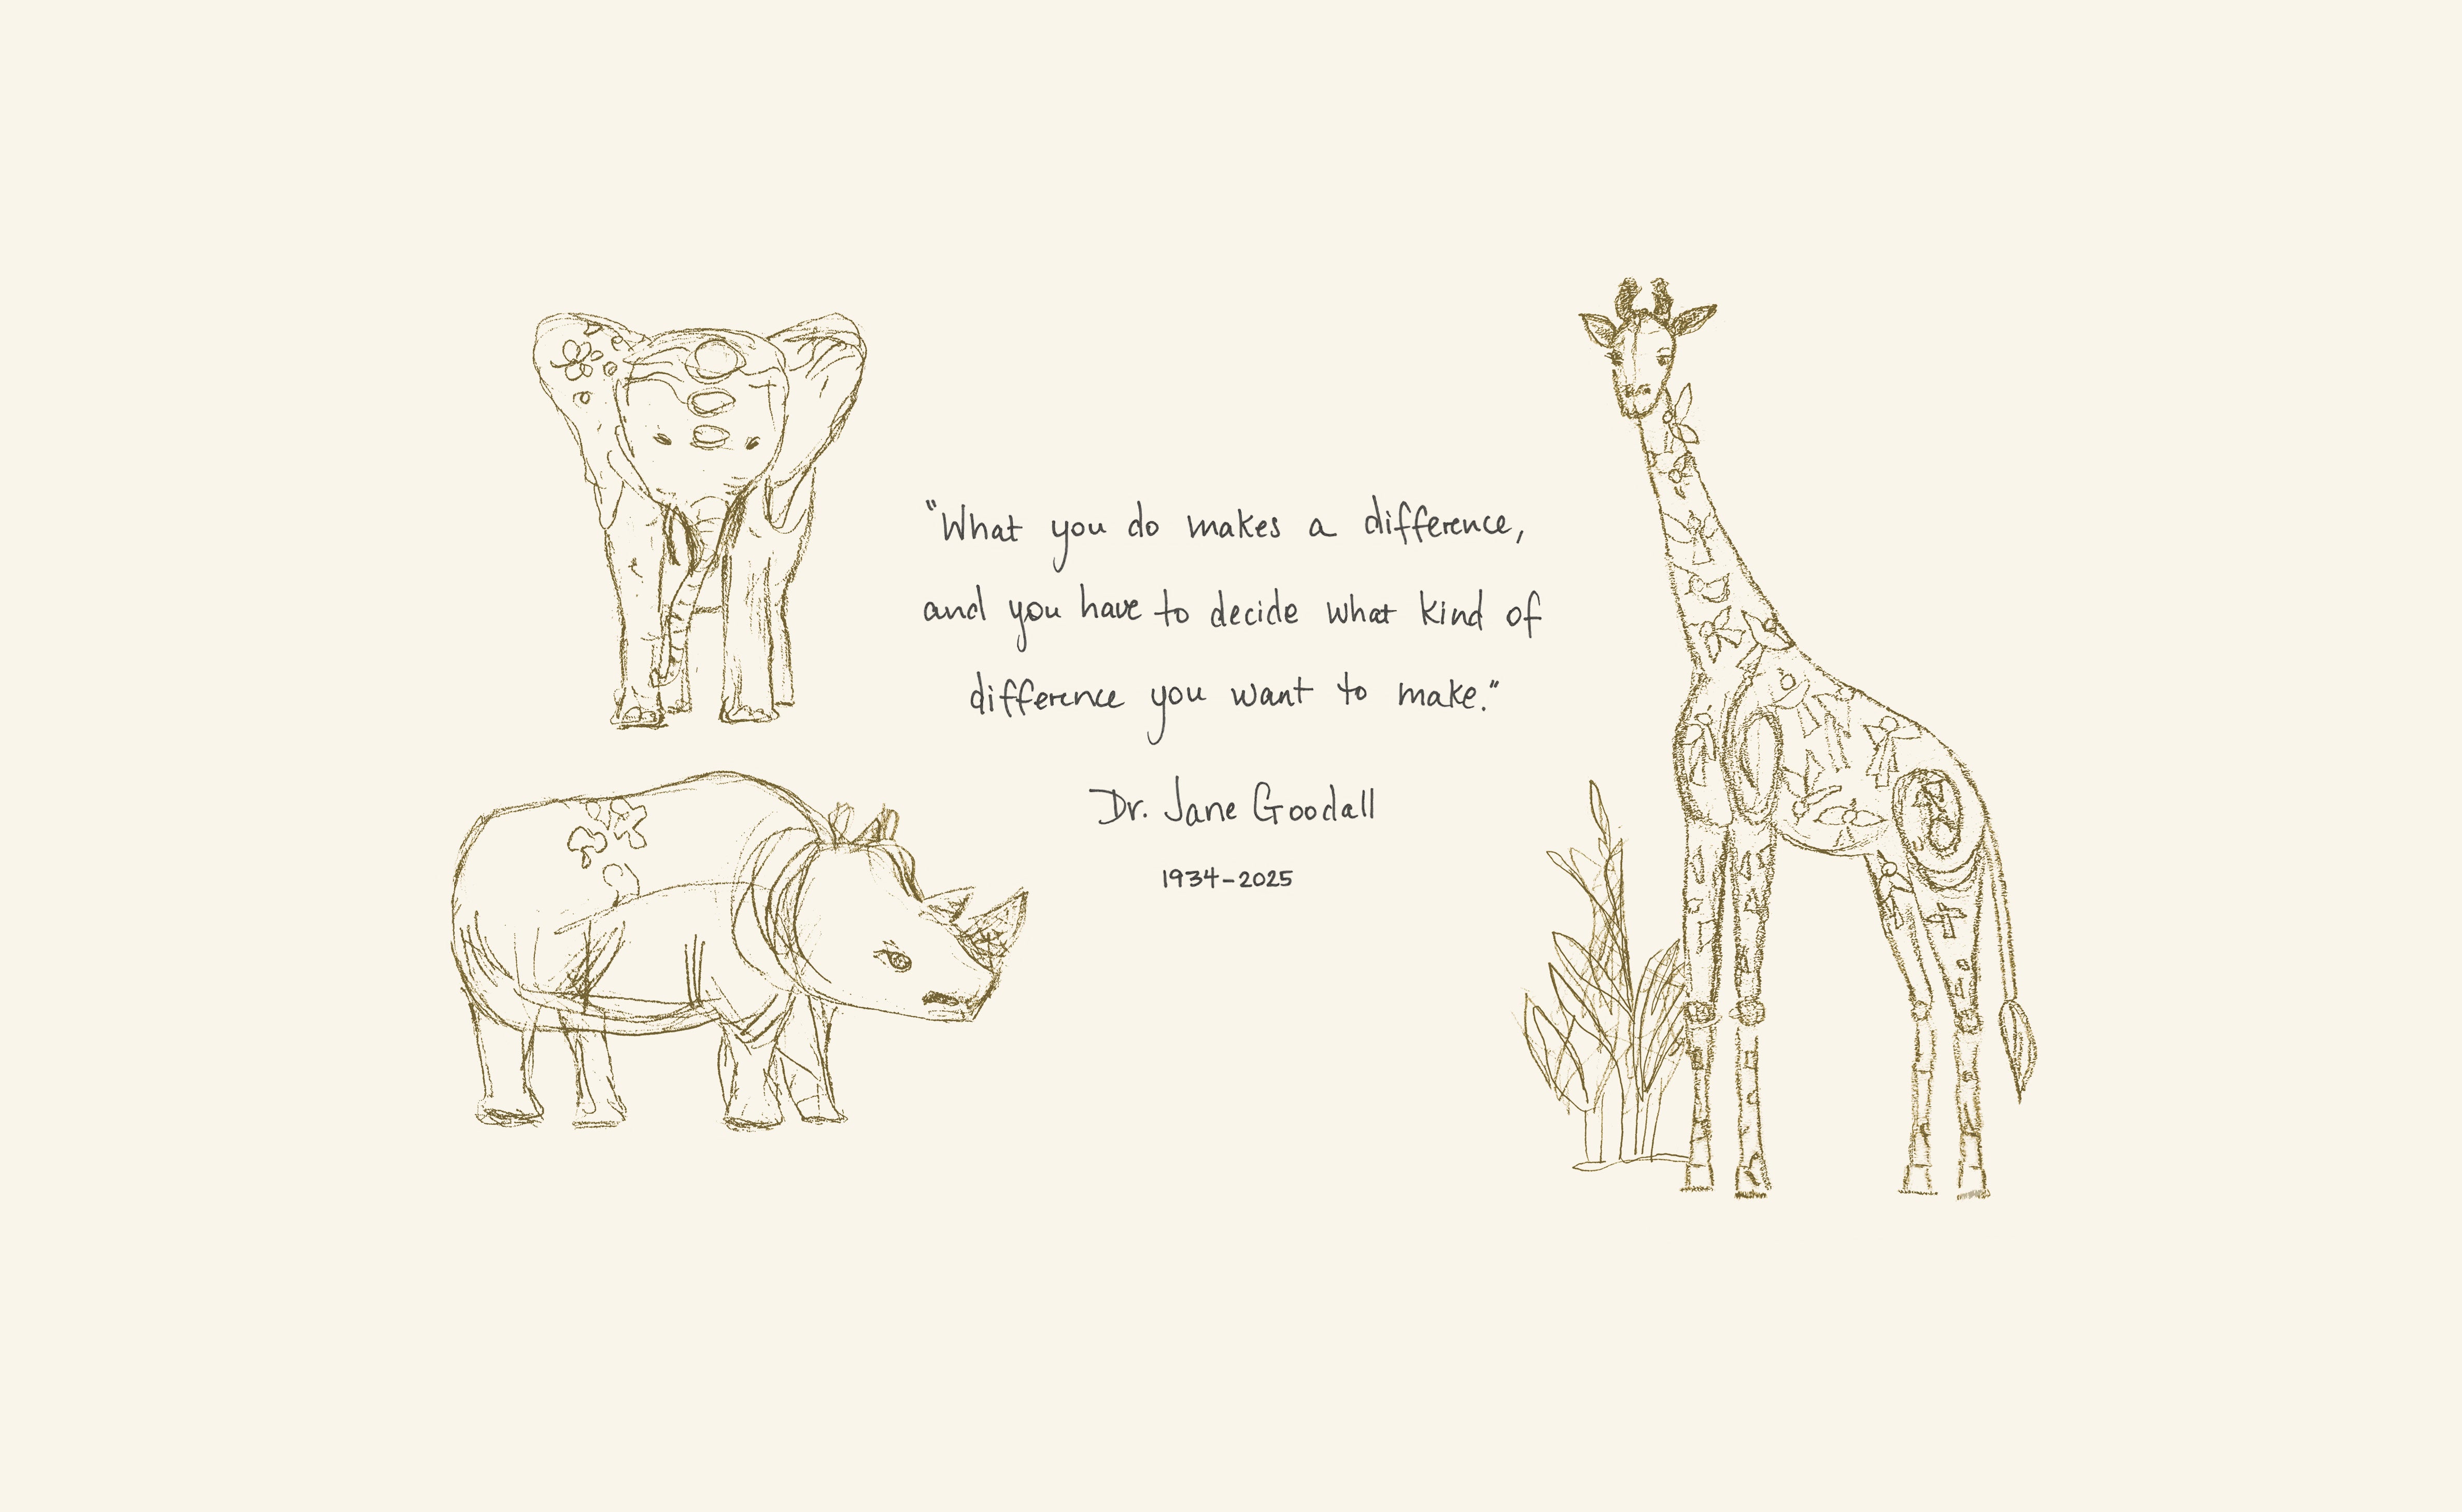 "What you do makes a difference,
and you have to decide what kind of
difference you want to make."
Dr. Jane Goodall
1934-2025